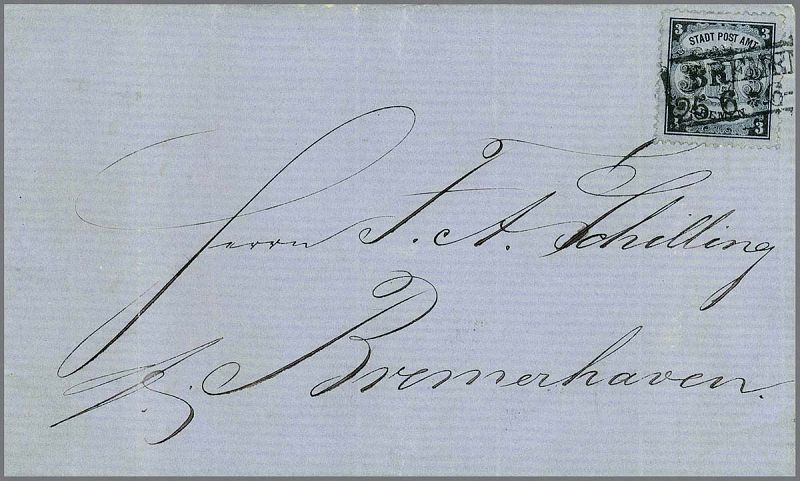 3
STADT POST AMT
BREMEN
25 6
3 3
Herrn F. A. Schilling
Bremerhaven.